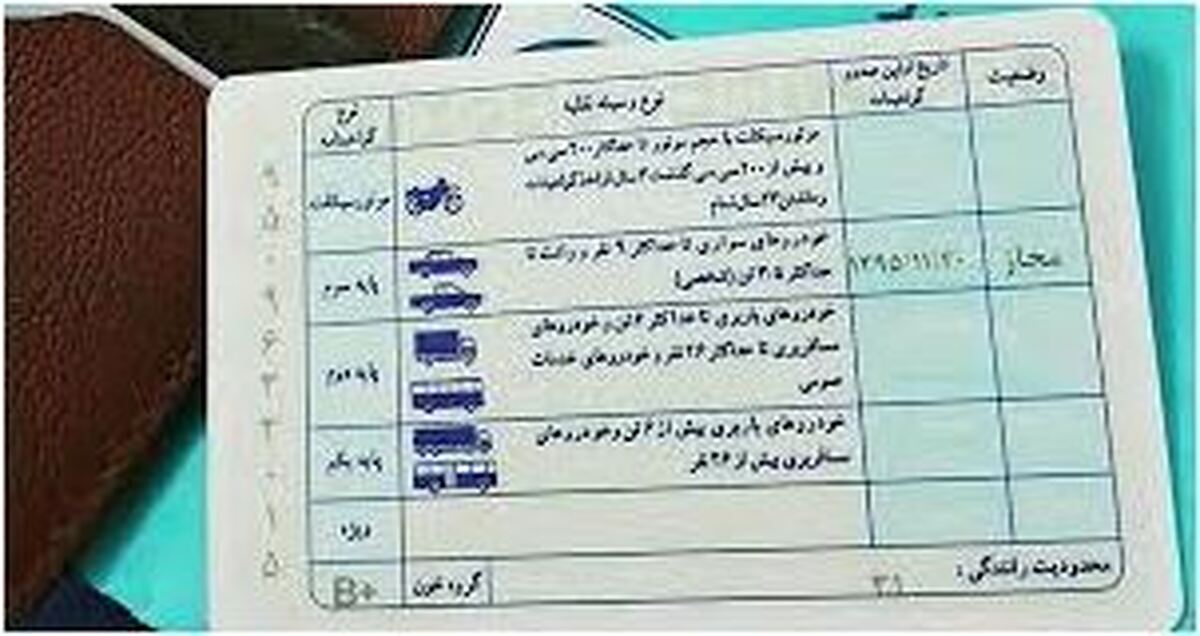 وضعیت
تاریخ اولین صدور گواهینامه
نوع وسیله نقلیه
نوع گواهینامه
موتورسیکلت با حجم موتور تا حداکثر ۲۰۰ سی سی
و بیش از ۲۰۰ سی سی گذشت ۲ سال از اخذ گواهینامه
و داشتن ۲۳ سال تمام
موتورسیکلت
مجاز
۱۳۹۵/۱۱/۲۰
خودروهای سواری تا حداکثر ۹ نفر و وانت تا
حداکثر ۳.۵ تن (شخصی)
پایه سوم
خودروهای باربری تا حداکثر ۶ تن و خودروهای
مسافربری تا حداکثر ۲۶ نفر و خودروهای خدمات
عمومی
پایه دوم
خودروهای باربری بیش از ۶ تن و خودروهای
مسافربری بیش از ۲۶ نفر
پایه یکم
ویژه
محدودیت رانندگی :
۳۱
گروه خون
B+